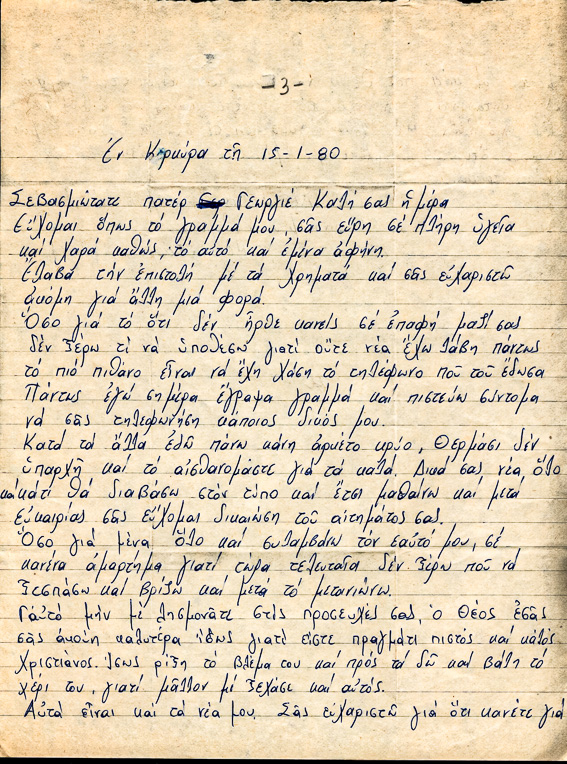 -3-
Ἐν Κερκύρα τῆ 15-1-80
Σεβασμιώτατε πατέρ Γεωργιέ Καλή σας ἡμέρα
Εὔχομαι ὅπως τό γράμμά μου, σᾶς εὕρη σέ πλήρη ὑγεία
καί χαρά καθώς, τό αὐτό καί ἐμένα ἀφήνη.
Ἔλαβα τήν ἐπιστολή μέ τά χρήματά καί σᾶς εὐχαριστῶ
ἀκόμη γιά ἄλλη μιά φορά.
Ὅσο γιά τό ὅτι δέν ἦρθε κανείς σέ ἐπαφή μαζί σας
δέν ξέρω τί νά ὑποθέσω γιατί οὔτε νέα ἔχω λάβη πάντως
τό πιό πιθάνο εἶναι νά ἔχη χάση τό τηλέφωνο πού τοῦ ἔδωσα
Πάντως ἐγώ σήμερα ἔγραψα γράμμα καί πιστεύω σύντομα
νά σᾶς τηλεφωνήση κάποιος δικός μου.
Κατά τά ἄλλα ἐδῶ πάνω κάνη ἀρκέτο κρύο, Θερμάσι δέν
ὑπαρχῆ καί τό αἰσθανομάστε γιά τά καλά. Δικά σας νέα ὅλο
καί κάτι θά διαβάσω στόν τύπο καί ἔτσι μαθαίνω καί μετά
εὐκαιρίας σᾶς εὔχομαι δικαίωση τοῦ αἰτήματος σας.
Ὅσο γιά μένα ὅλο καί συλαμβάνω τόν ἑαυτό μου, σέ
κανένα ἁμαρτημα γιατί τώρα τελευταῖα δέν ξέρω ποῦ νά
ξεσπάσω καί βρίζω καί μετά τό μετανιώνω.
Γι'αὐτό μήν μέ λησμονᾶτε στίς προσευχές σας, ὁ Θέος ἐσᾶς
σᾶς ἀκούη καλυτέρα ἴσως γιατί εἶστε πραγμάτι πιστός καί καλός
Χριστιανος. Ἴσως ρίξη τό βλέμα του καί πρός τά δῶ καί βάλη τό
χέρι του, γιατί μᾶλλον μέ ξέχασε καί αὐτός.
Αὐτά εἶναι καί τά νέα μου. Σᾶς εὐχαριστῶ γιά ὅτι κανέτε γιά